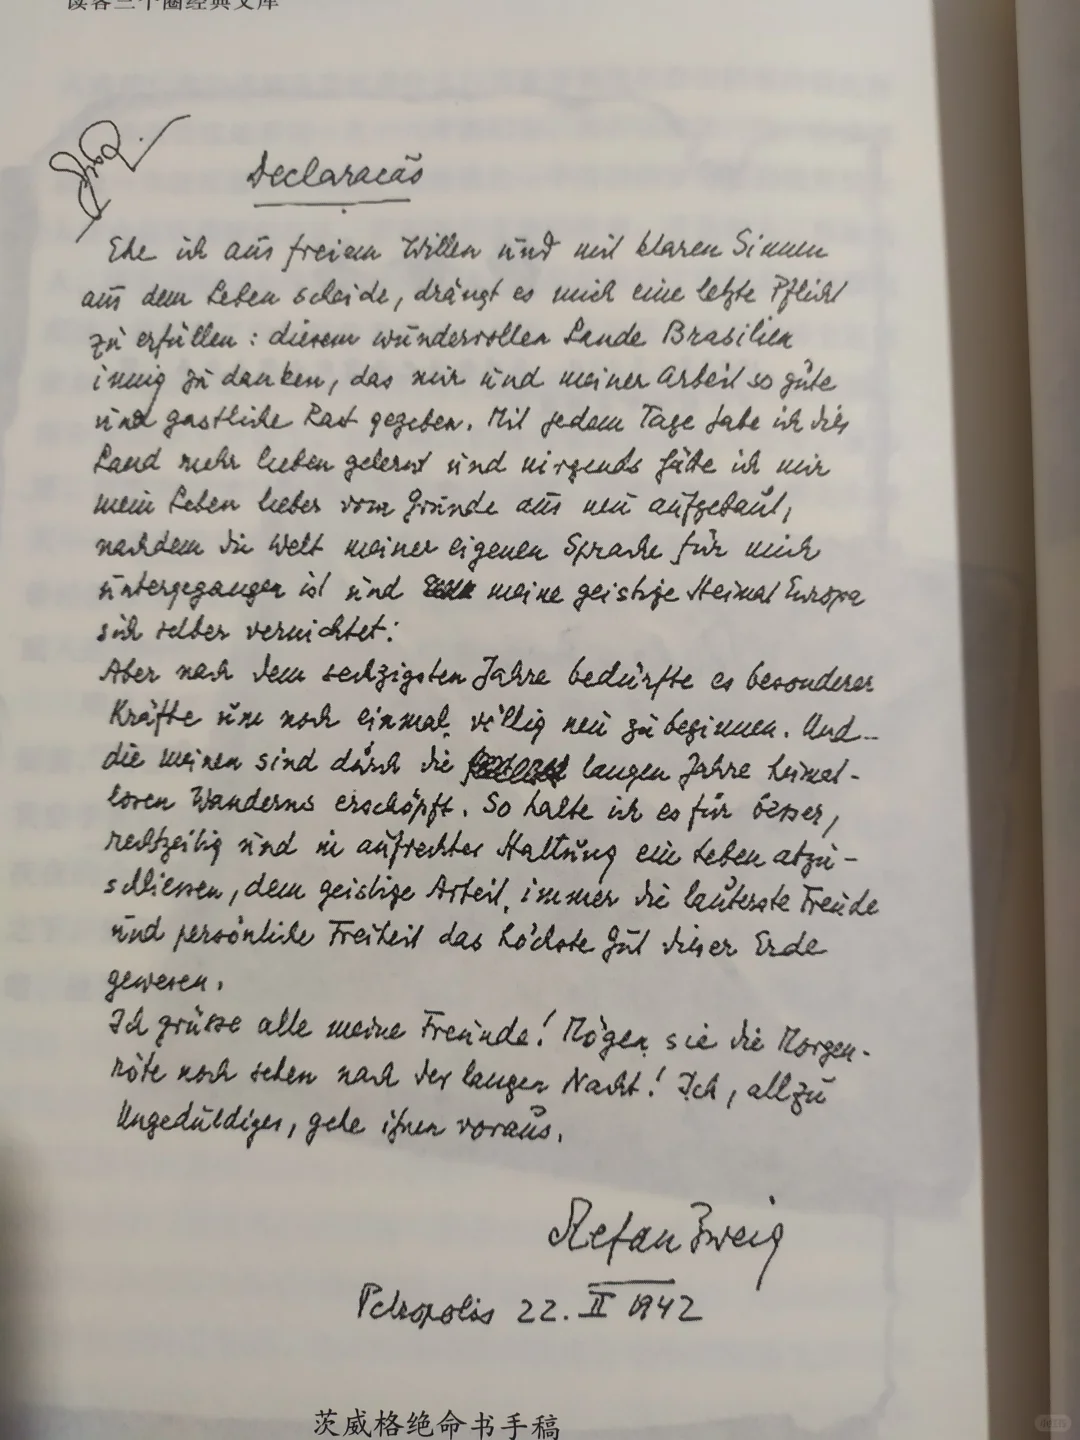 读客三个圈经典文库
Declaracão
Ehe ich aus freiem Willen und mit klaren Sinnen
aus dem Leben scheide, drängt es mich eine letzte Pflicht
zu erfüllen: diesem wundervollen Lande Brasilien
innig zu danken, das mir und meiner Arbeit so gute
und gastliche Rast gegeben. Mit jedem Tage habe ich dies
Land mehr lieben gelernt und nirgends hätte ich mir
mein Leben lieber vom Grunde aus neu aufgebaut,
nachdem die Welt meiner eigenen Sprache für mich
untergegangen ist und meine geistige Heimat Europa
sich selber vernichtet:
Aber nach dem sechzigsten Jahre bedürfte es besonderer
Kräfte um noch einmal völlig neu zu beginnen. Und
die meinen sind durch die langen Jahre heimat-
losen Wanderns erschöpft. So halte ich es für besser,
rechtzeitig und in aufrechter Haltung ein Leben abzu-
schliessen, dem geistige Arbeit immer die lauterste Freude
und persönliche Freiheit das höchste Gut dieser Erde
gewesen.
Ich grüsse alle meine Freunde! Mögen sie die Morgen-
röte noch sehen nach der langen Nacht! Ich, allzu
Ungeduldiger, gehe ihnen voraus.
Stefan Zweig
Petropolis 22. II 1942
茨威格绝命书手稿
小红书